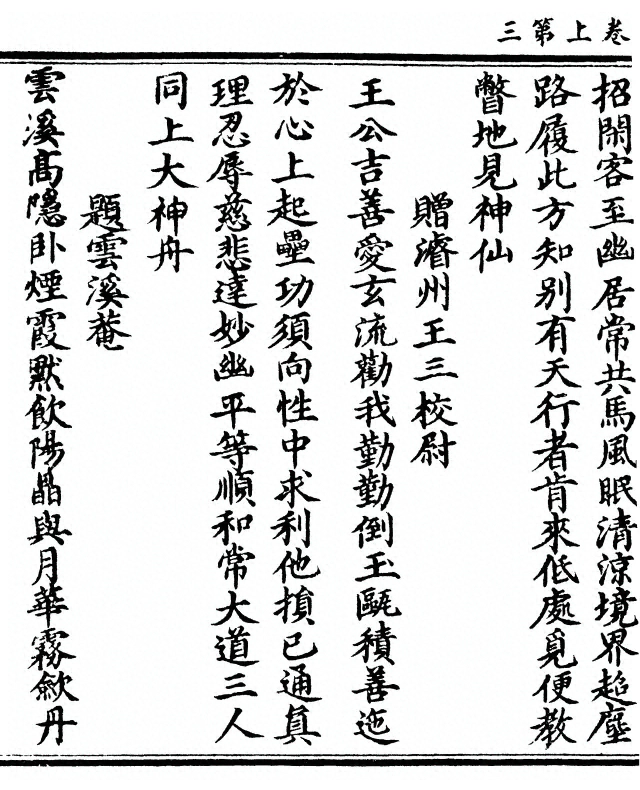 卷上第三
招閑客至幽居常共馬風眠清涼境界超塵
路履此方知別有天行者肯來低處覓便教
瞥地見神仙
贈濬州王三校尉
王公吉善愛玄流勸我勤勤倒玉甌積善迤
於心上起壘功須向性中求利他損己通真
理忍辱慈悲達妙幽平等順和常大道三人
同上大神舟
題雲溪菴
雲溪高隱卧煙霞默飲陽晶與月華霧斂丹